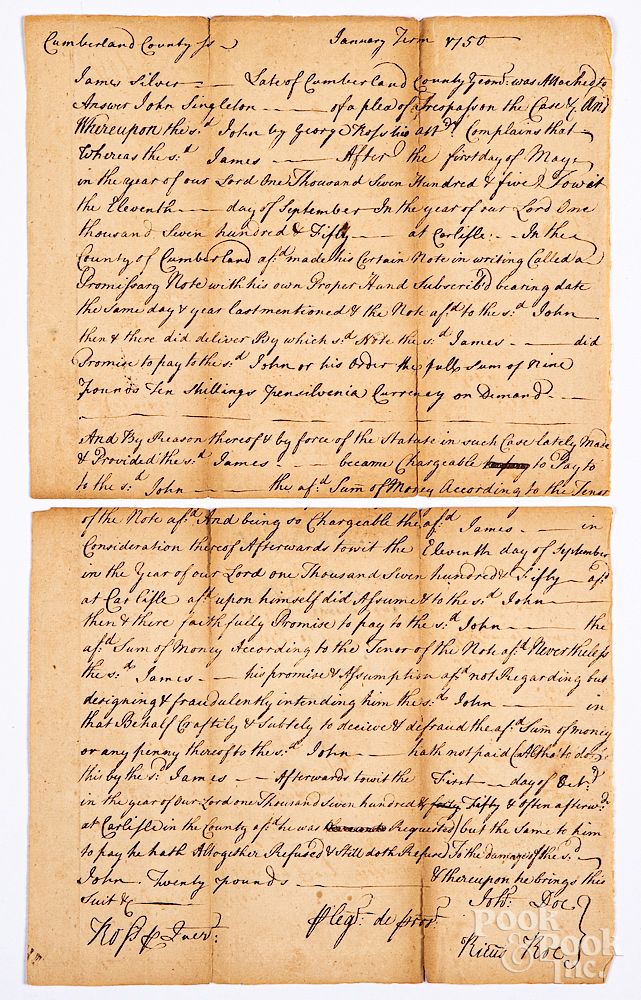 Cumberland County ss January Term 1750
James Silver Late of Cumberland County Yeom: was Attached to
Answer John Singleton of a plea of Trespass on the Case &c. And
Whereupon the s.d John by George Ross his att.y Complains that
Whereas the s.d James After the first day of May
in the year of our Lord One Thousand Seven Hundred & five To wit
the Eleventh day of September In the year of our Lord One
thousand Seven hundred & Fifty at Carlisle In the
County of Cumberland af.d made his Certain Note in writing Called a
Promissary Note with his own Proper Hand Subscrib'd bearing date
the Same day & year last mentioned & the Note af.d to the s.d John
then & there did deliver By which s.d Note the s.d James did
Promise to pay to the s.d John or his Order the full Sum of Nine
Pounds Ten Shillings Pensilvenia Currency on Demand
And By Reason thereof & by force of the Statute in such Case lately Made
& Provided the s.d James became Chargeable to Pay to
to the s.d John the af.d Sum of Money According to the Tenor
of the Note af.d And being so Chargeable the af.d James in
Consideration thereof Afterwards to wit the Eleventh day of September
in the Year of our Lord one Thousand Seven hundred & Fifty af.d
at Carlisle af.d upon himself did Assume & to the s.d John
then & there faithfully Promise to pay to the s.d John the
af.d Sum of Money According to the Tenor of the Note af.d Nevertheless
the s.d James his promise & Assumption af.d not Regarding but
designing & fraudulently intending him the s.d John in
that Behalf Craftily & Subtely to decieve & defraud the af.d Sum of money
or any penny thereof to the s.d John hath not paid (Altho' to do
this by the s.d James Afterwards to wit the First day of Oct.r
in the year of Our Lord one Thousand Seven hundred & forty Fifty & often afterw.ds
at Carlisle in the County af.d he was Requested) but the Same to him
to pay he hath Altogether Refused & Still doth Refuse To the damage of the s.d
John Twenty pounds & thereupon he brings this
Suit &c Joh.n Doe
Ross p Quer: Pleg.s de pros.r
Ric.us Roe
POOK & POOK inc.